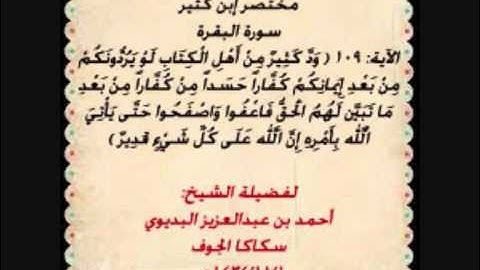 مختصر إبن كثير
سورة البقرة
الآية: ١٠٩ ( وَدَّ كَثِيرٌ مِنْ أَهْلِ الْكِتَابِ لَوْ يَرُدُّونَكُمْ
مِنْ بَعْدِ إِيمَانِكُمْ كُفَّاراً حَسَداً مِنْ كُفَّاراً مِنْ بَعْدِ
مَا تَبَيَّنَ لَهُمُ الْحَقُّ فَاعْفُوا وَاصْفَحُوا حَتَّى يَأْتِيَ
اللَّهُ بِأَمْرِهِ إِنَّ اللَّهَ عَلَى كُلِّ شَيْءٍ قَدِيرٌ )
لفضيلة الشيخ:
أحمد بن عبدالعزيز البديوي
سكاكا الجوف